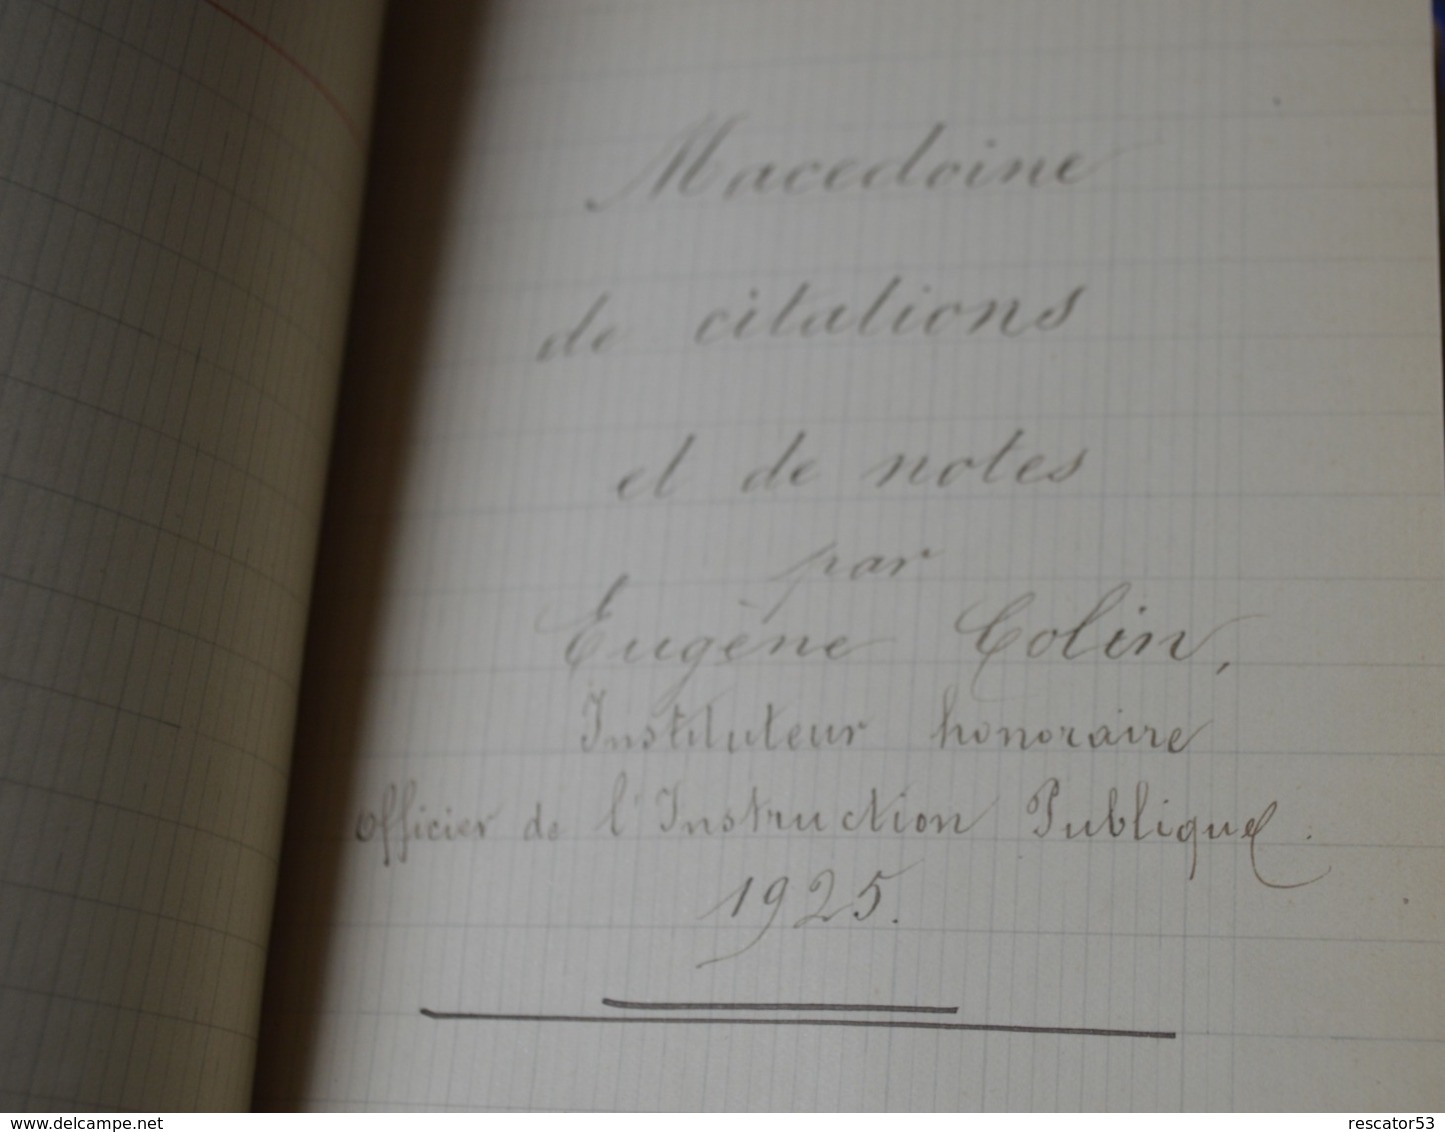 Macedoine
de citations
et de notes
par
Eugène Colin,
Instituteur honoraire
Officier de l'Instruction Publique.
1925.
www.delcampe.net
rescator53